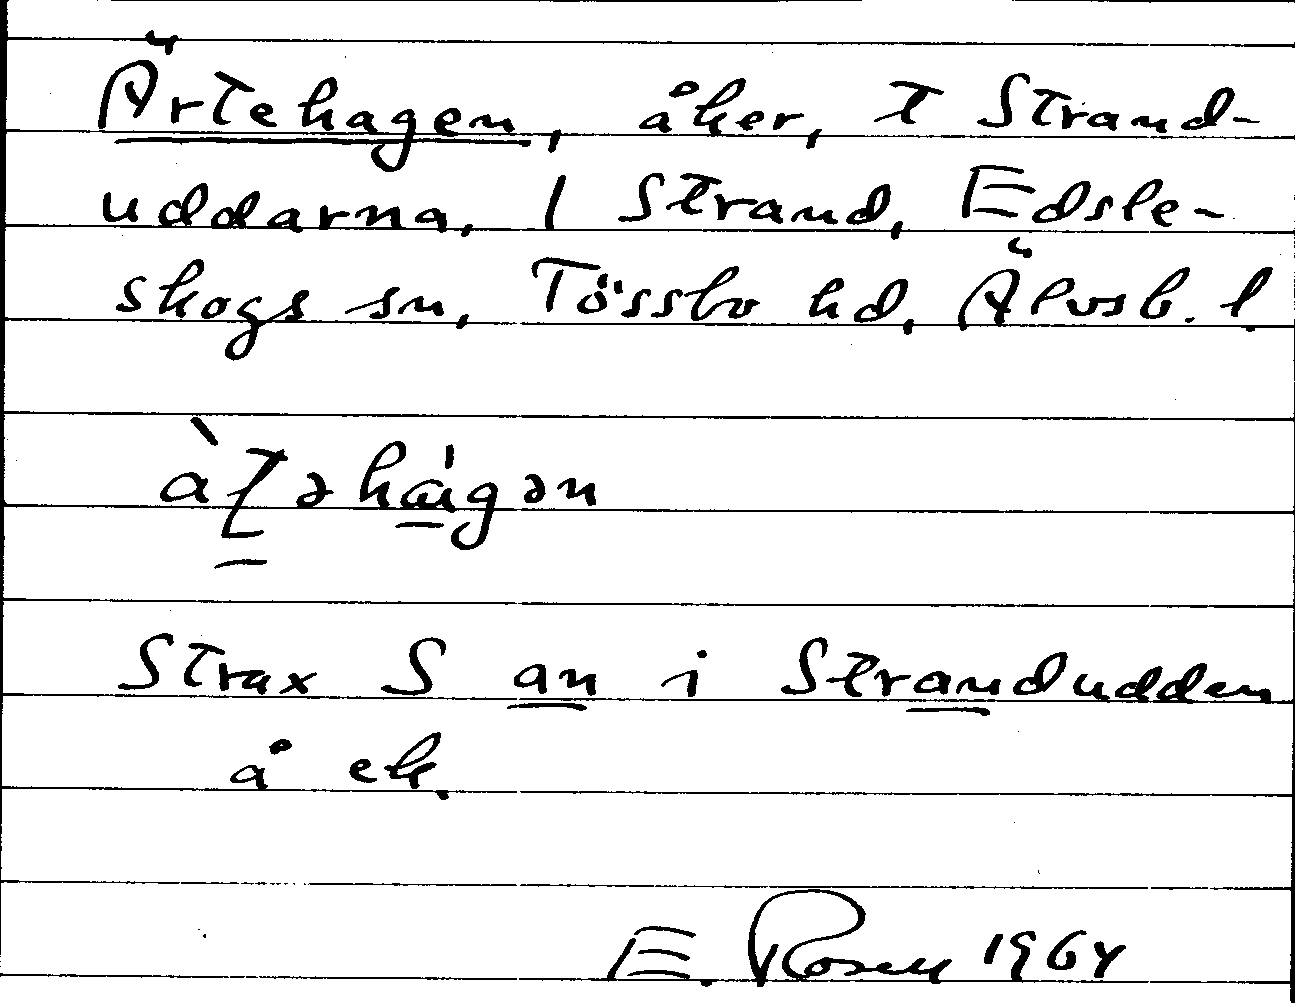 Ärtehagen, åker, t Strand-
uddarna, 1 Strand, Edsle-
skogs sn, Tössbo hd, Älvsb. l.
Strax S an i Strandudden
å ek.
E. Rosen 1964